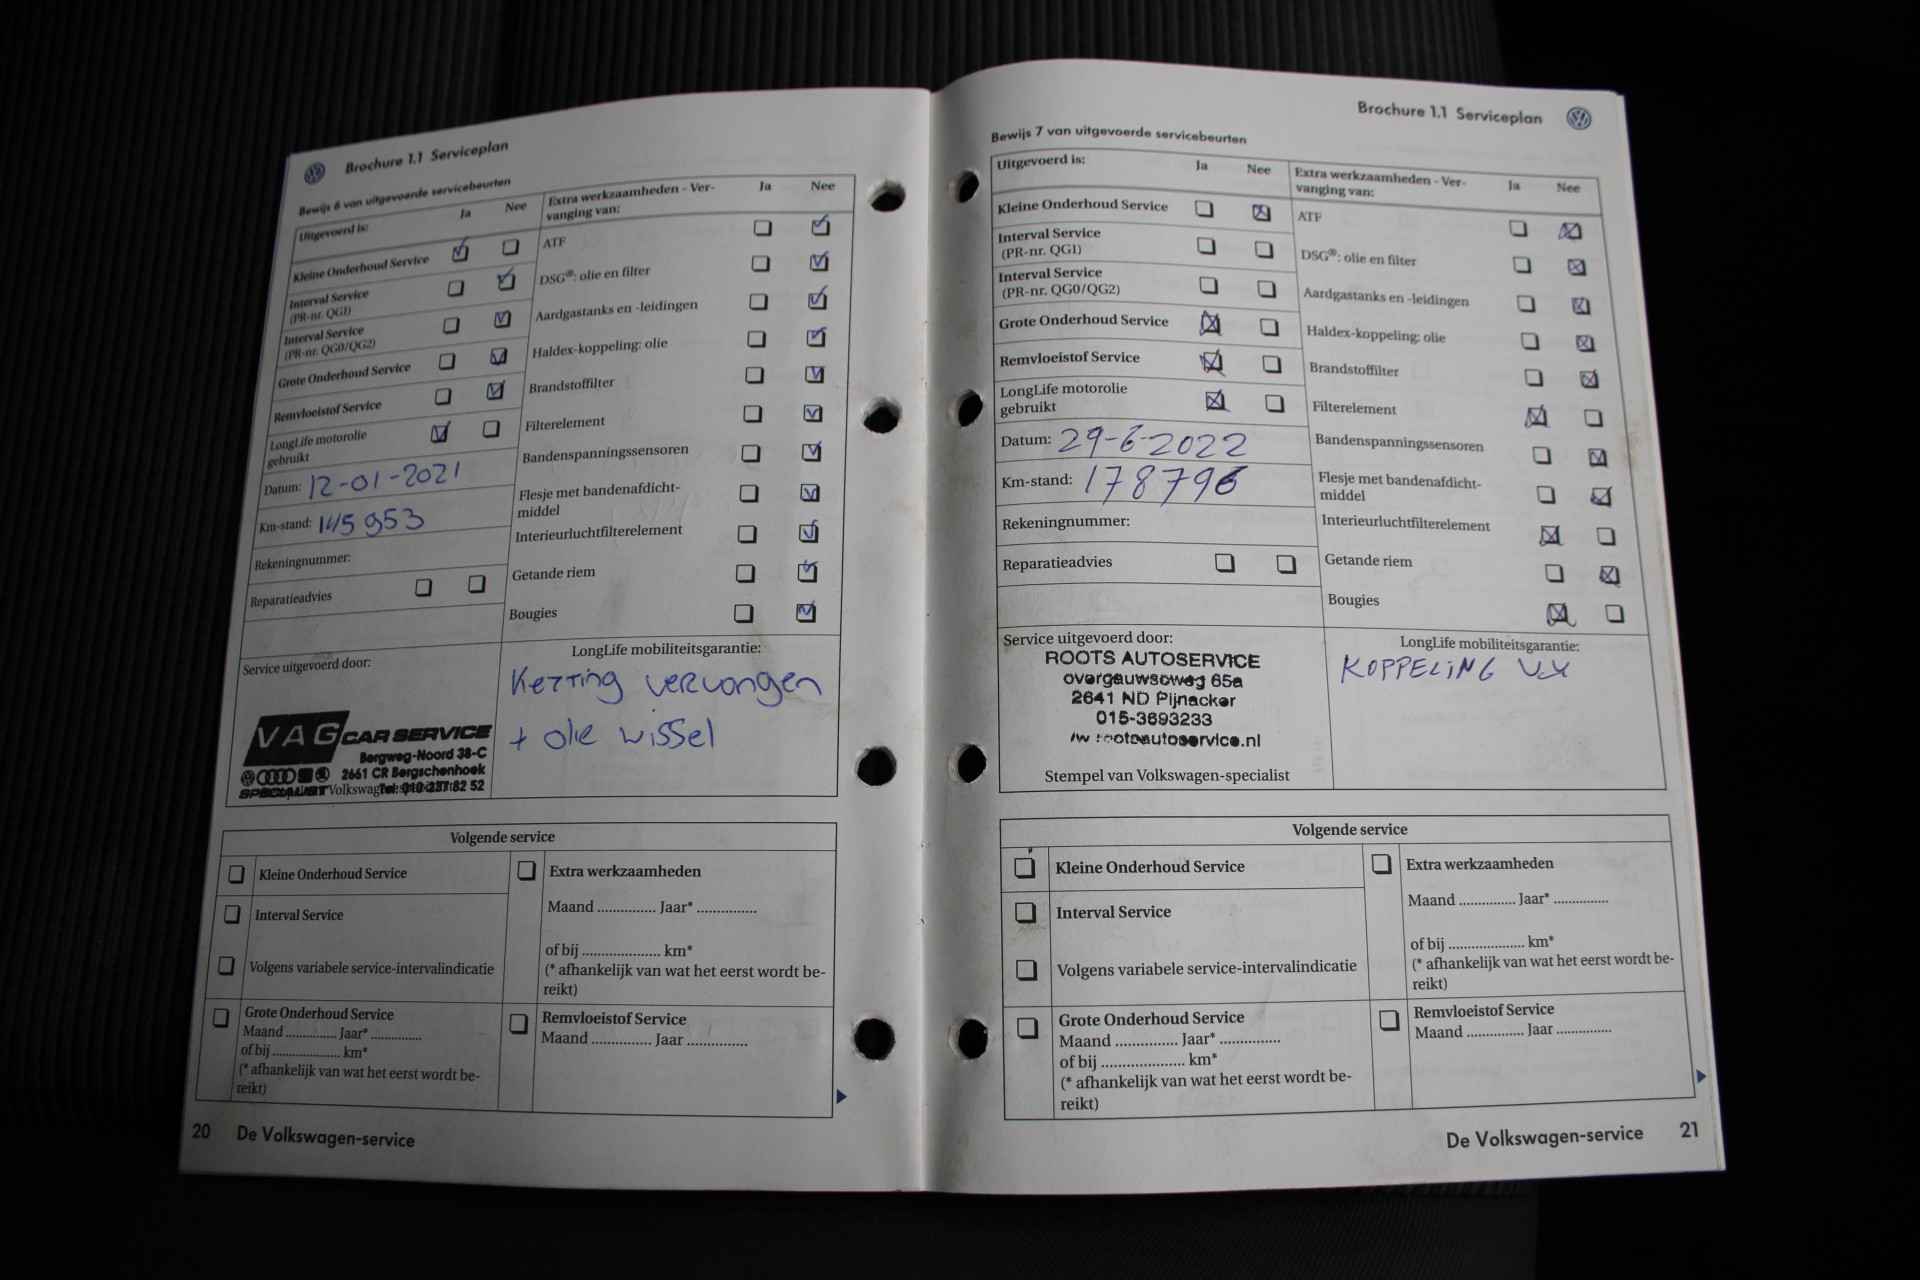 Brochure 1.1 Serviceplan
Bewijs 6 van uitgevoerde servicebeurten
Uitgevoerd is:
Ja
Nee
Kleine Onderhoud Service
Interval Service
(PR-nr. QG1)
Interval Service
(PR-nr. QG0/QG2)
Grote Onderhoud Service
Remvloeistof Service
LongLife motorolie
gebruikt
Datum: 12-01-2021
Km-stand: 145953
Rekeningnummer:
Reparatieadvies
Extra werkzaamheden - Ver-
vanging van:
Ja
Nee
ATF
DSG®: olie en filter
Aardgastanks en -leidingen
Haldex-koppeling: olie
Brandstoffilter
Filterelement
Bandenspanningssensoren
Flesje met bandenafdicht-
middel
Interieurluchtfilterelement
Getande riem
Bougies
Service uitgevoerd door:
VAG CAR SERVICE
Bergweg-Noord 38-C
2661 CR Bergschenhoek
SPECIALIST
LongLife mobiliteitsgarantie:
Ketting vervangen
+ olie wissel
Volgende service
Kleine Onderhoud Service
Interval Service
Volgens variabele service-intervalindicatie
Grote Onderhoud Service
Maand ............... Jaar* ...............
of bij ..................... km*
(* afhankelijk van wat het eerst wordt be-
reikt)
Extra werkzaamheden
Maand ............... Jaar* ...............
of bij ..................... km*
(* afhankelijk van wat het eerst wordt be-
reikt)
Remvloeistof Service
Maand ............... Jaar ...............
20 De Volkswagen-service
Brochure 1.1 Serviceplan
Bewijs 7 van uitgevoerde servicebeurten
Uitgevoerd is:
Ja
Nee
Kleine Onderhoud Service
Interval Service
(PR-nr. QG1)
Interval Service
(PR-nr. QG0/QG2)
Grote Onderhoud Service
Remvloeistof Service
LongLife motorolie
gebruikt
Datum: 29-6-2022
Km-stand: 178796
Rekeningnummer:
Reparatieadvies
Extra werkzaamheden - Ver-
vanging van:
Ja
Nee
ATF
DSG®: olie en filter
Aardgastanks en -leidingen
Haldex-koppeling: olie
Brandstoffilter
Filterelement
Bandenspanningssensoren
Flesje met bandenafdicht-
middel
Interieurluchtfilterelement
Getande riem
Bougies
Service uitgevoerd door:
ROOTS AUTOSERVICE
overgauwseweg 65a
2641 ND Pijnacker
015-3693233
rootsautoservice.nl
Stempel van Volkswagen-specialist
LongLife mobiliteitsgarantie:
KOPPELING
Volgende service
Kleine Onderhoud Service
Interval Service
Volgens variabele service-intervalindicatie
Grote Onderhoud Service
Maand ............... Jaar* ...............
of bij ..................... km*
(* afhankelijk van wat het eerst wordt be-
reikt)
Extra werkzaamheden
Maand ............... Jaar* ...............
of bij ..................... km*
(* afhankelijk van wat het eerst wordt be-
reikt)
Remvloeistof Service
Maand ............... Jaar ...............
De Volkswagen-service 21